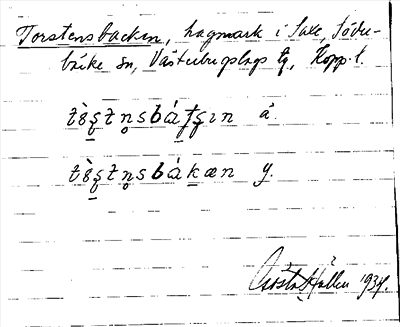 Torstensbacken, hagmark i Saxe, Söder-
bärke sn, Västerbergslags tg, Kopp. l.
tɞ̀ʂtn̥sbáʈʂɪn ä.
tɞ̀ʂtn̥sbákæn y.
Gösta Hallén 1934.